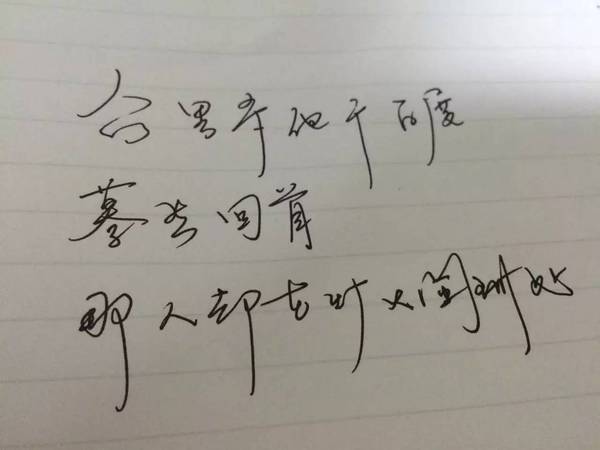 众里寻他千百度
蓦然回首
那人却在灯火阑珊处